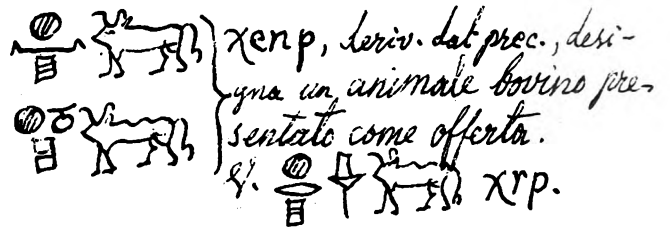 χenp, deriv. dal prec., desi-
gna un animale bovino pre-
sentato come offerta.
V. χrp.